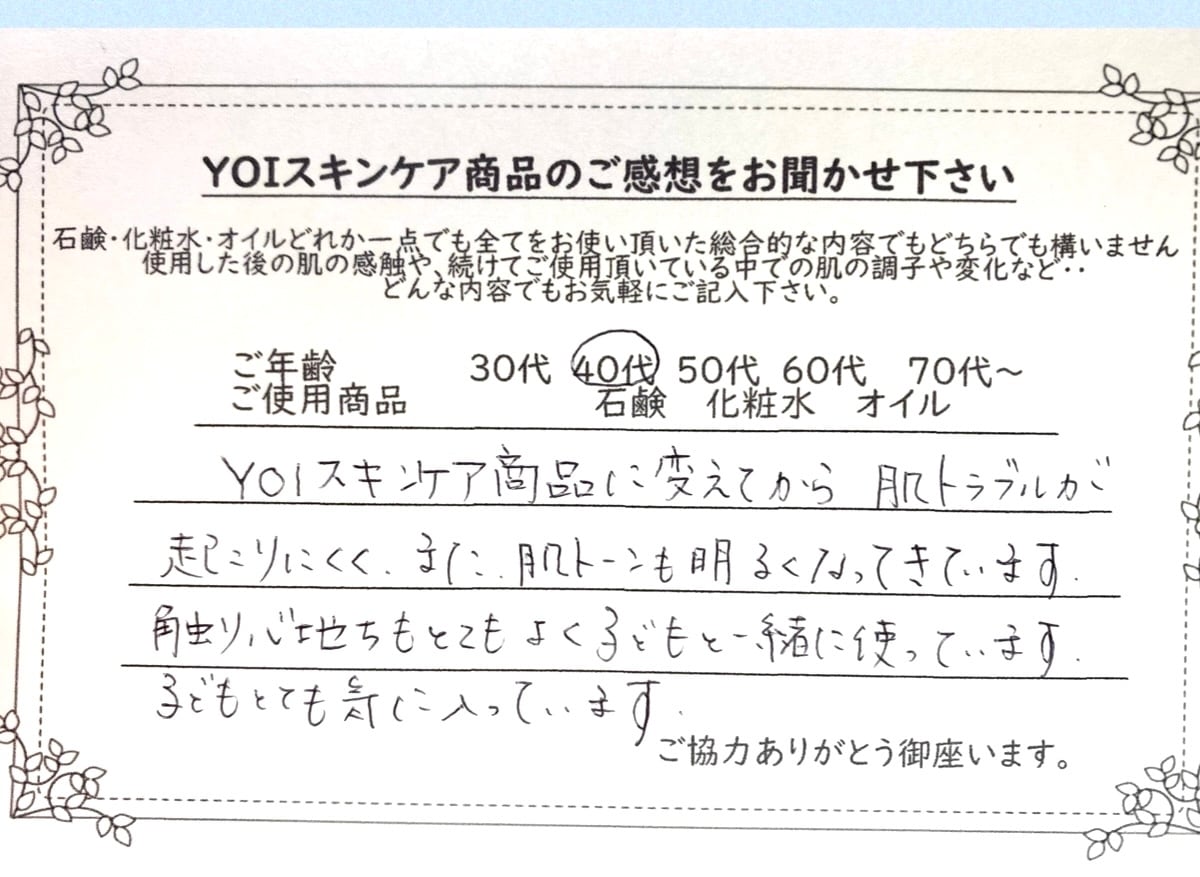 YOIスキンケア商品のご感想をお聞かせ下さい
石鹸・化粧水・オイルどれか一点でも全てをお使い頂いた総合的な内容でもどちらでも構いません
使用した後の肌の感触や、続けてご使用頂いている中での肌の調子や変化など‥
どんな内容でもお気軽にご記入下さい。
ご年齢 30代 40代 50代 60代 70代〜
ご使用商品 石鹸 化粧水 オイル
YOIスキンケア商品に変えてから 肌トラブルが
起こりにくく、また、肌トーンも明るくなってきています。
触り心地ちもとてもよく子どもと一緒に使っています。
子どもとても気に入っています。
ご協力ありがとう御座います。